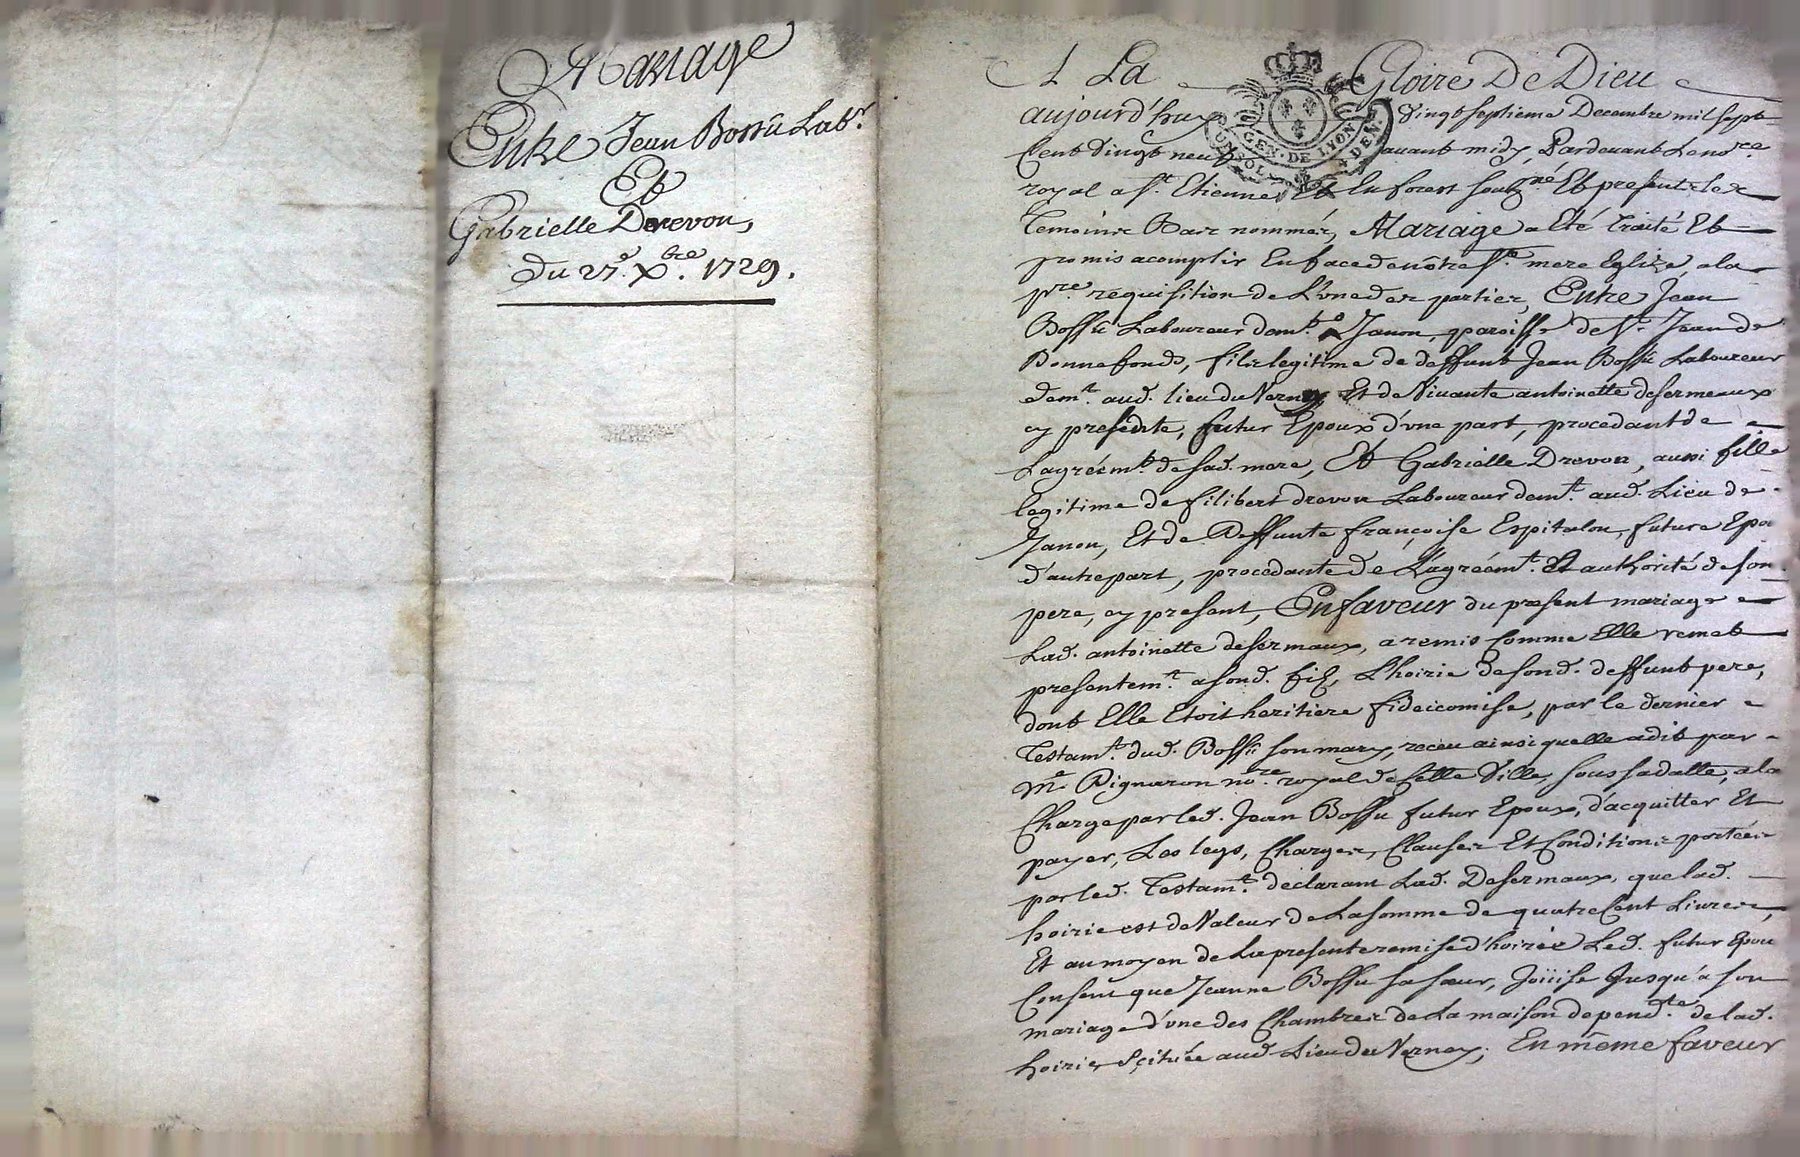 Mariage
Entre Jean Bossû Lab.r
Et
Gabrielle Drevon,
Du 27.e Xbre. 1729.
A La Gloire De Dieu
aujourd'huy vingt septieme Decembre mil sept
Cent vingt neuf avant midy, Pardevant Le no.re
royal a S.t Etienne En forest soubz.né Et presents les
Temoins Bas nommés, Mariage a Eté Traité Et
promis acomplir En face de nôtre S.te mere Eglize, a la
p.re requisition de L'une des parties, Entre Jean
Bossû Laboureur dem.t a Janon, paroisse de S.t Jean de
Bonnefonds, fils legitime de deffunt Jean Bossû Laboureur
dem.t aud. lieu du Verney Et de Vivante antoinette desermeaux
cy presente, futur Epoux d'une part, procedant de
L'agréem.t de sad. mere, Et Gabrielle Drevon, aussi fille
legitime de filibert drevon Laboureur dem.t aud. Lieu de
Janon, Et de Deffunte françoise Espitalon, future Epo
d'autre part, procedante de L'agréem.t Et authorité de son
pere, cy present, En faveur du present mariage
Lad. antoinette desermaux, a remis Comme Elle remet
presentem.t a sond. fils, L'hoirie de sond. deffunt pere,
dont Elle Etoit heritiere fideicomise, par le dernier
Testam.t dud. Bossû son mary, receu ainsi quelle a dit par
M.e Pignaron no.re royal de Cette Ville, sous sa datte, a la
Charge par led. Jean Bossu futur Epoux, d'acquitter Et
payer, Les legs, Charges, Clauses Et Conditions portées
par led. Testam.t declarant Lad. Desermaux, que lad.
hoirie est de Valeur de La somme de quatre Cent Livres,
Et au moyen de La presente remise d'hoirie Led. futur Epou
Consent que Jeanne Bossu sa sœur, Joüise Jusqu'a son
mariage d'une des Chambres de La maison depend.te de lad.
hoirie Scituée aud. Lieu du Verney; En même faveur